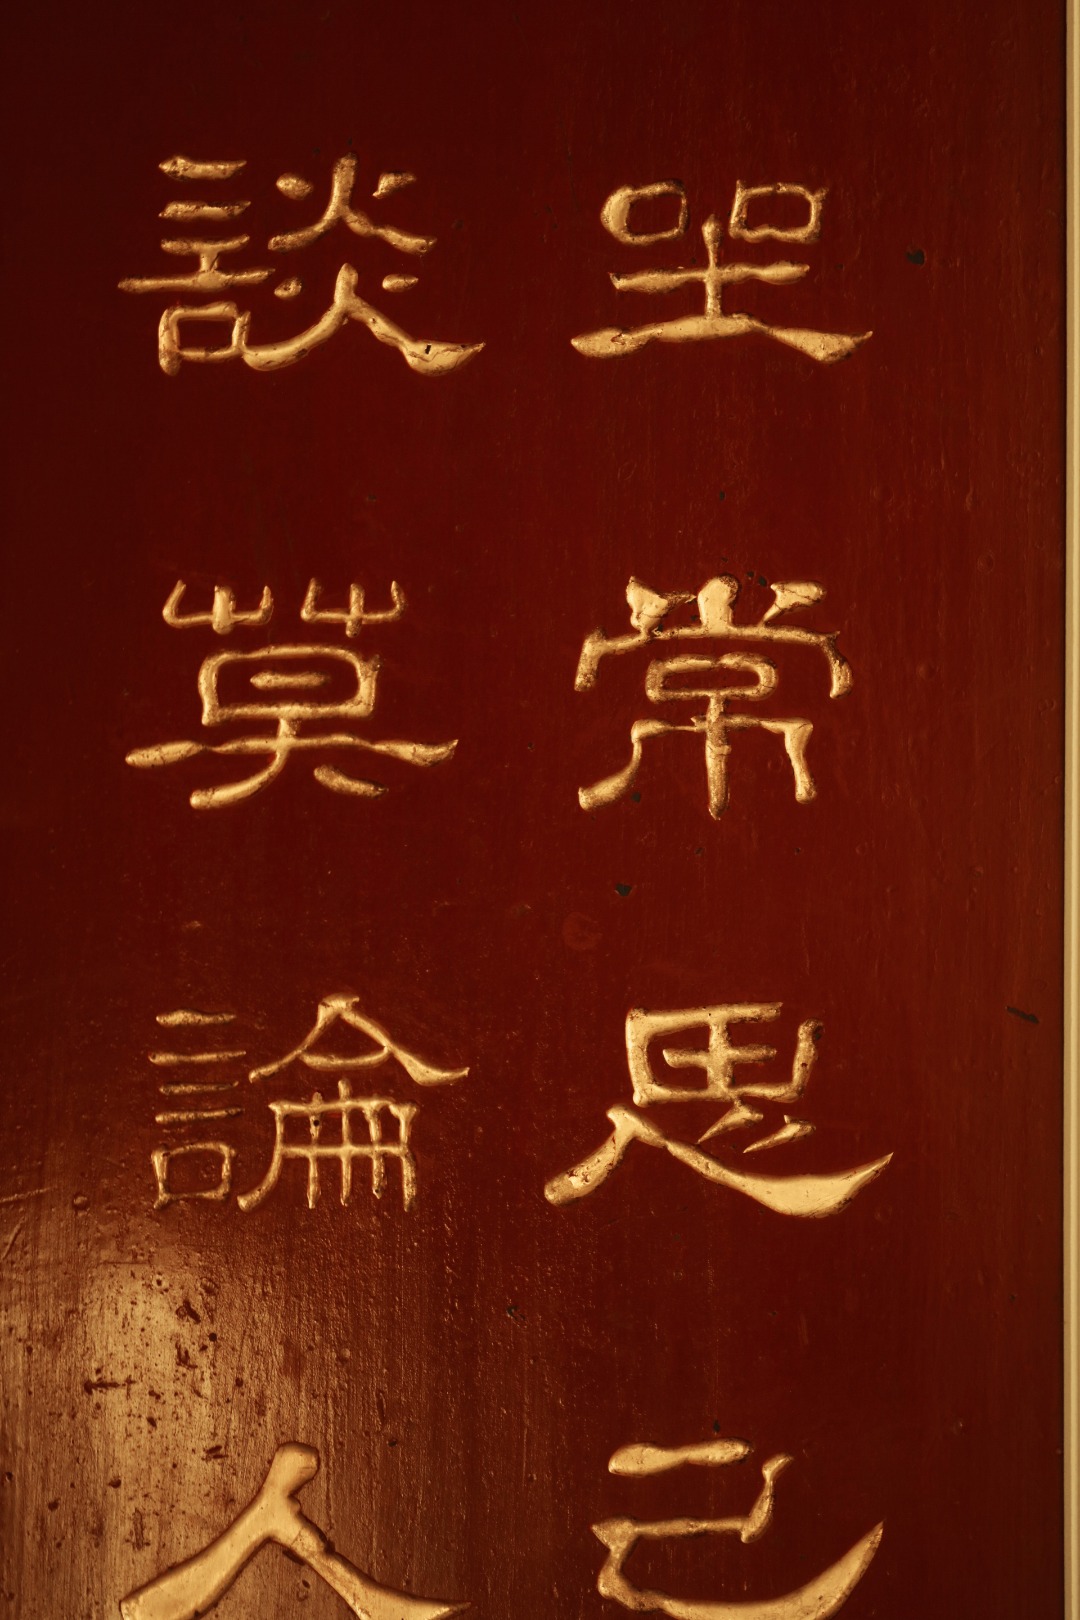 坐常思己
談莫論人